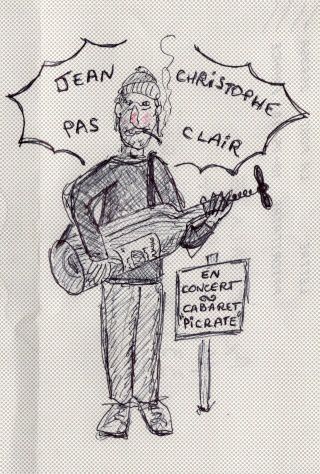 JEAN
PAS
CHRISTOPHE
CLAIR
EN
CONCERT
CABARET
"PICRATE"